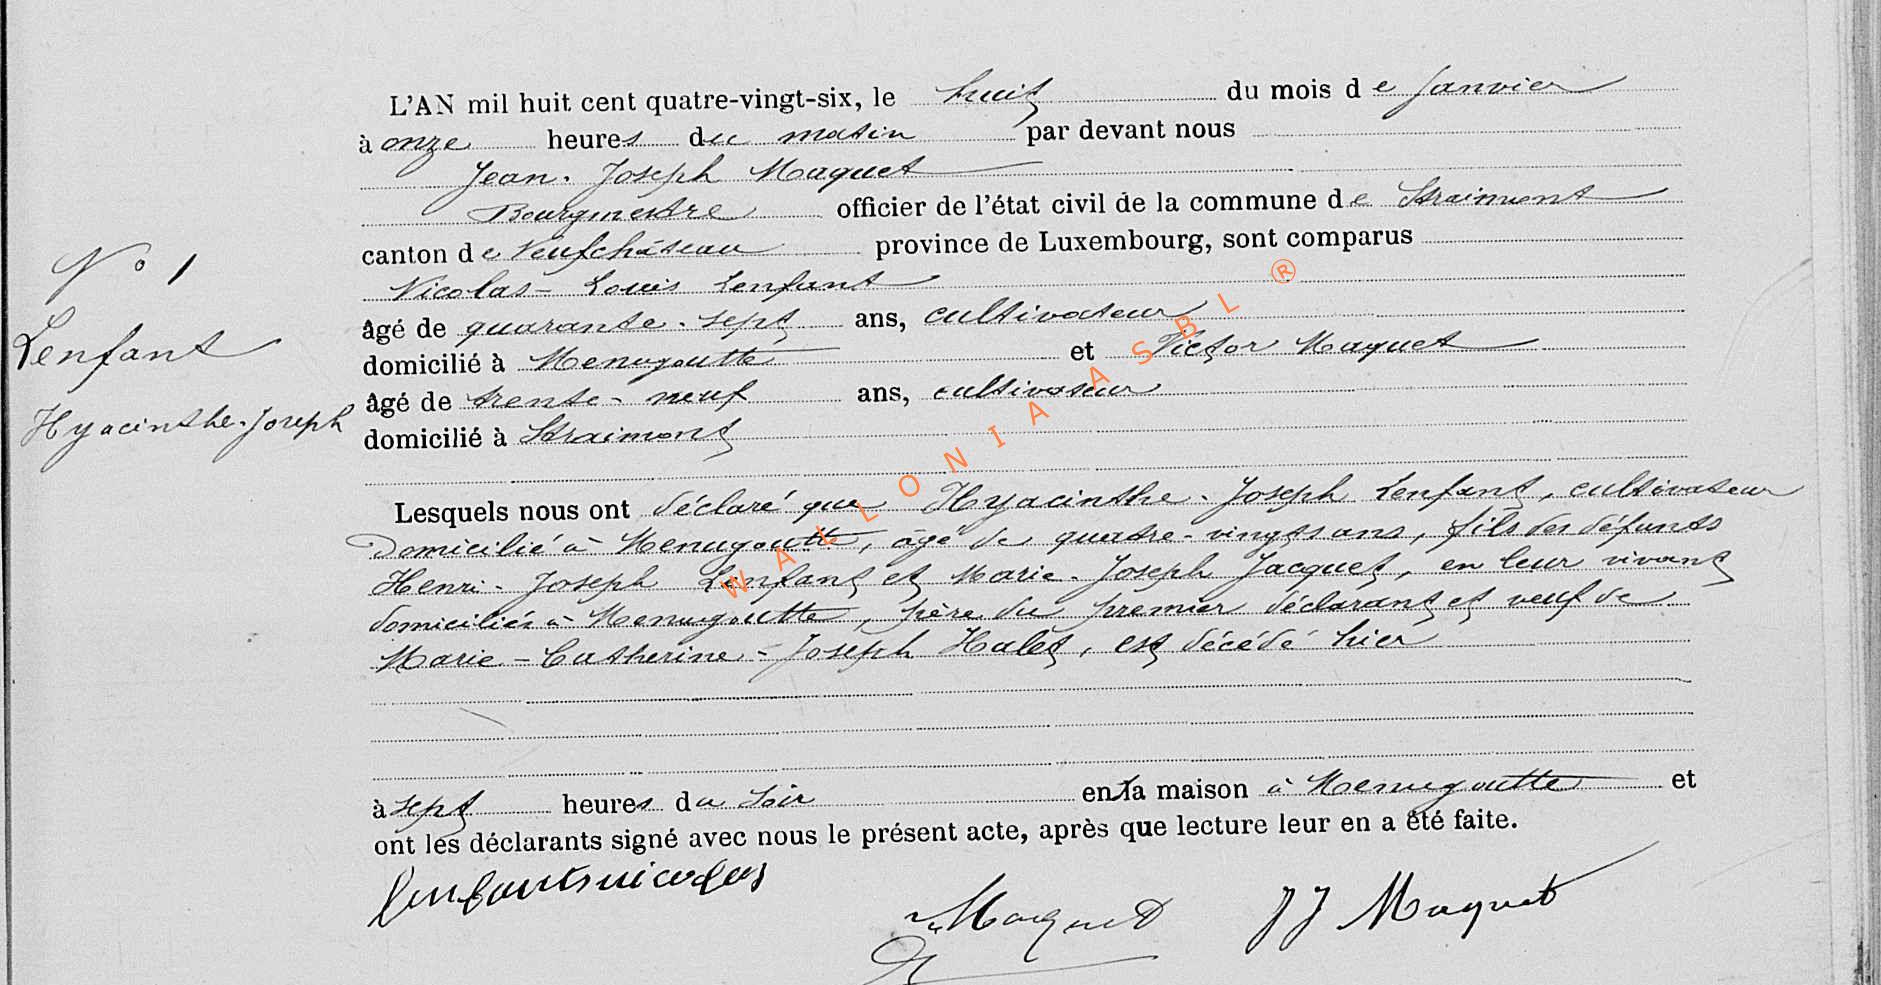 L'AN mil huit cent quatre-vingt-six, le huit du mois de Janvier
à onze heures du matin par devant nous
Jean-Joseph Maquet
Bourgmestre officier de l'état civil de la commune de Straimont
N° 1
canton de Neufchâteau province de Luxembourg, sont comparus
Nicolas-Louis Lenfant
Lenfant
âgé de quarante-sept ans, cultivateur
domicilié à Menugoutte et Victor Maquet
Hyacinthe-Joseph
âgé de trente-neuf ans, cultivateur
domicilié à Straimont
Lesquels nous ont déclaré que Hyacinthe-Joseph Lenfant, cultivateur
domicilié à Menugoutte, âgé de quatre-vingts ans, fils des défunts
Henri-Joseph Lenfant et Marie-Joseph Jacquet, en leur vivant
domiciliés à Menugoutte, père du premier déclarant et veuf de
Marie-Catherine-Joseph Halet, est décédé hier
à sept heures du soir en sa maison à Menugoutte et
ont les déclarants signé avec nous le présent acte, après que lecture leur en a été faite.
Lenfant nicolas
Maquet
JJ Maquet
WALLONIA ASBL ®